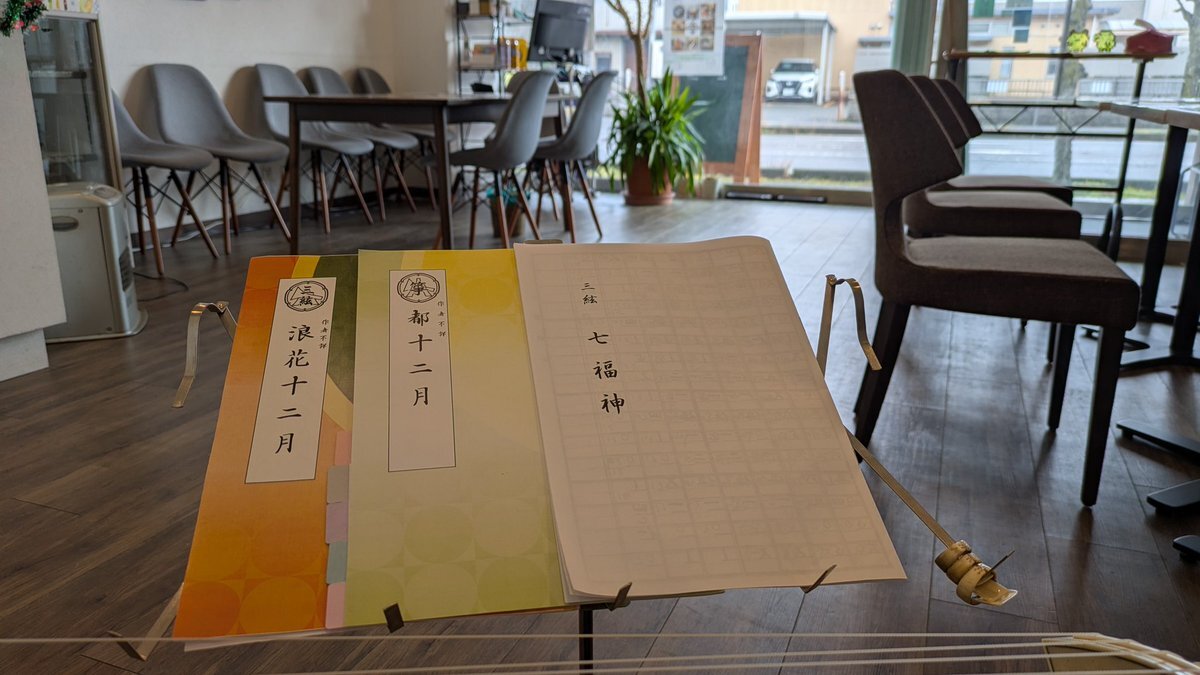 三絃
作者不詳
浪花十二月
箏
作者不詳
都十二月
三絃
七福神